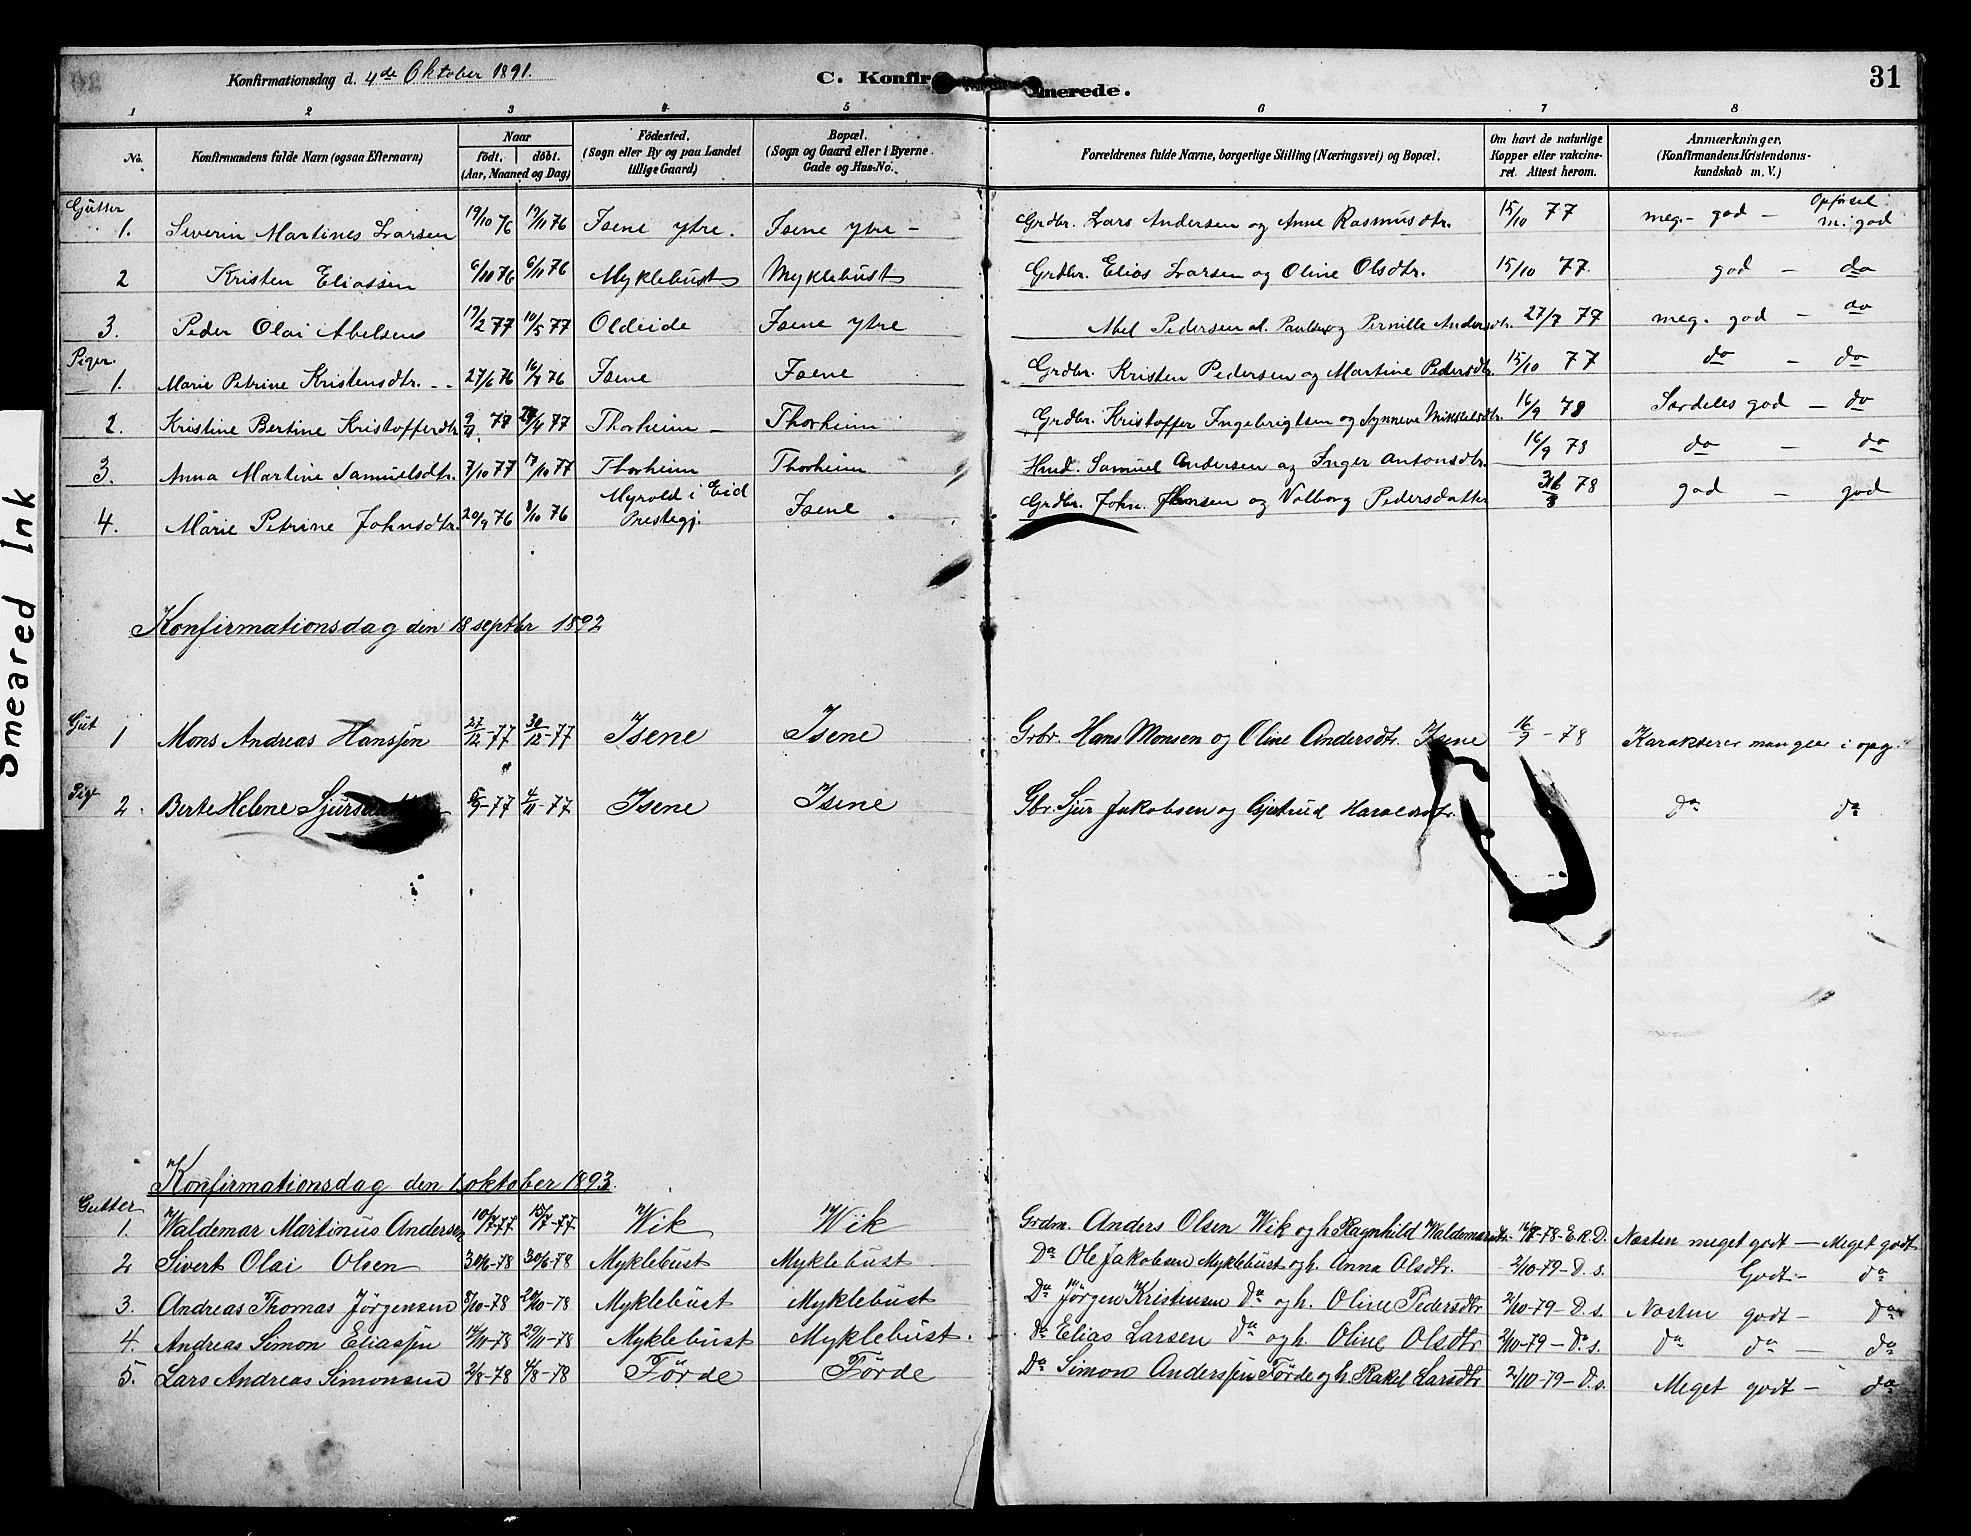 Smeared Ink
Konfirmationsdag d. 4de Oktober 1891.
C. Konfirmerede.
31
1 2 3 4 5 6 7 8
No.
Konfirmandens fulde Navn (ogsaa Efternavn)
Naar
födt. döbt.
(Aar, Maaned og Dag)
Födested.
(Sogn eller By og paa Landet tillige Gaard)
Bopæl.
(Sogn og Gaard eller i Byerne Gade og Hus-No.
Forældrenes fulde Navne, borgerlige Stilling (Næringsvei) og Bopæl.
Om havt de naturlige Kopper eller vakcineret. Attest herom.
Anmærkninger.
(Konfirmandens Kristendomskundskab m. V.)
Gutter
Opförsel
1. Severin Martines Larsen 19/10 76 19/11 76 Isene ytre. Isene ytre - Grdbr. Lars Andersen og Anne Rasmusdtr. 15/10 77 meg. god - m. god
2 Kristen Eliassen 6/10 76 6/11 76 Myklebust Myklebust Grdbr. Elias Larsen og Oline Olsdtr. 15/10 77. god - do
3. Peder Olai Abelsen 17/2 77 10/5 77 Oldeide Isene ytre Abel Pedersen al. Paulsen og Pernille Andersdtr. 27/7 77 meg. god - do
Piger.
1. Marie Petrine Kristensdtr. 27/6 76 16/7 76 Isene Isene Grdbr. Kristen Pedersen og Martine Pedersdtr. 15/10 77 do - do
2. Kristine Bertine Kristofferdtr 77 77 Thorheim - Thorheim Grdbr. Kristoffer Ingebrigtsen og Synneve Mikkelsdtr. 16/9 78 Særdeles god - do
3. Anna Martine Samuelsdtr. 7/10 77 17/10 77 Thorheim Thorheim Hmd. Samuel Andersen og Inger Antonsdtr. 16/9 78 do - do
4. Marie Petrine Johnsdtr. 20/9 76 8/10 76 Myrold i Eid Prestegj. Isene Grdbr. John Jensen og Valborg Pedersdatter 78 god - god
Konfirmationsdag den 18 septbr 1892
Gut
1 Mons Andreas Hanssen 27/12-77 30/12-77 Isene Isene Grbr. Hans Monsen og Oline Andersdtr. Isene 16/9-78 Karakterer mangler i opg.
Pige
2. Berte Helene 5/9-77 4/11-77 Isene Isene Gbr. Sjur Jakobsen og Gjertrud Haraldsdtr. da da
Konfirmationsdag den 1 oktober 1893.
Gutter
1. Waldemar Martinus Andersen 10/7-77 15/7-77 Wik Wik Grdm. Anders Olsen Wik og h. Ragnhild Waldemarsdtr. 16/8-78-E.R.D. Næsten meget godt - Meget godt
2 Sivert Olai Olsen 30/6-78 30/6-78 Myklebust Myklebust Da Ole Jakobsen Myklebust og h. Anna Olsdtr. 2/10-79-D.s. Godt - da
3. Andreas Thomas Jörgensen 8/10-78 20/10-78 Myklebust Myklebust Da Jörgen Kristensen Da og h. Oline Pedersdtr 2/10-79-D.s. Næsten godt - da
4. Andreas Simon Eliassen 14/11-78 29/11-78 Myklebust Myklebust. Da Elias Larsen Da og h. Oline Olsdtr 2/10-79-D.s. da da - da
5. Lars Andreas Simonsen 2/8-78 4/8-78 Förde Förde Da Simon Anderssen Förde og h. Rakel Larsdtr 2/10-79-D.s. Meget godt - da